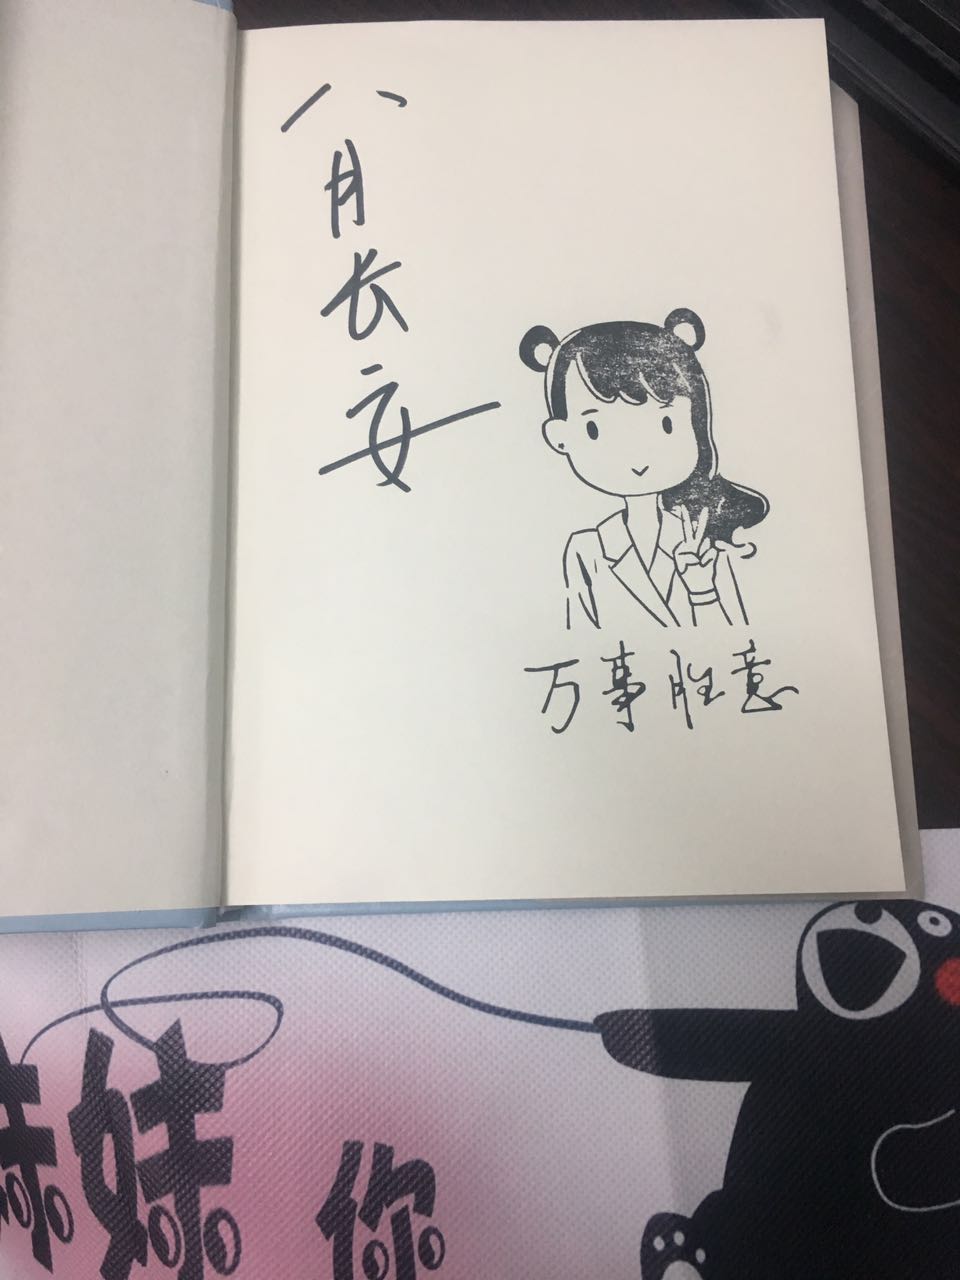 八月长安
万事胜意
妹妹你